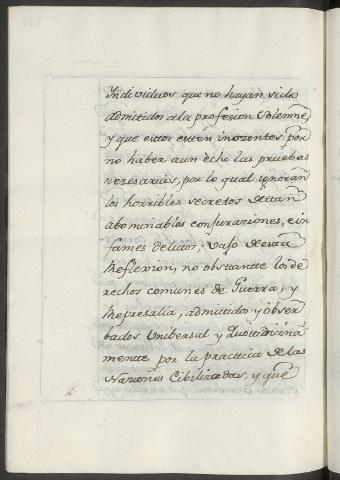 Individuos que no hayan sido
admitidos ala profesion Solemne,
y que estos estén inozentes, por
no haber aun echo las pruebas
nezesarias, por lo qual ignoran
los horribles secretos de tan
abominables conjuraciones, è in
fames delitos, vajo de esta
Reflexion, no obstante los de
rechos comunes de Guerra, y
Represalia, admitido y obser
bados Unibersal y Quotidiana
mente por la practica de las
Naciones Cibilizadas, y que